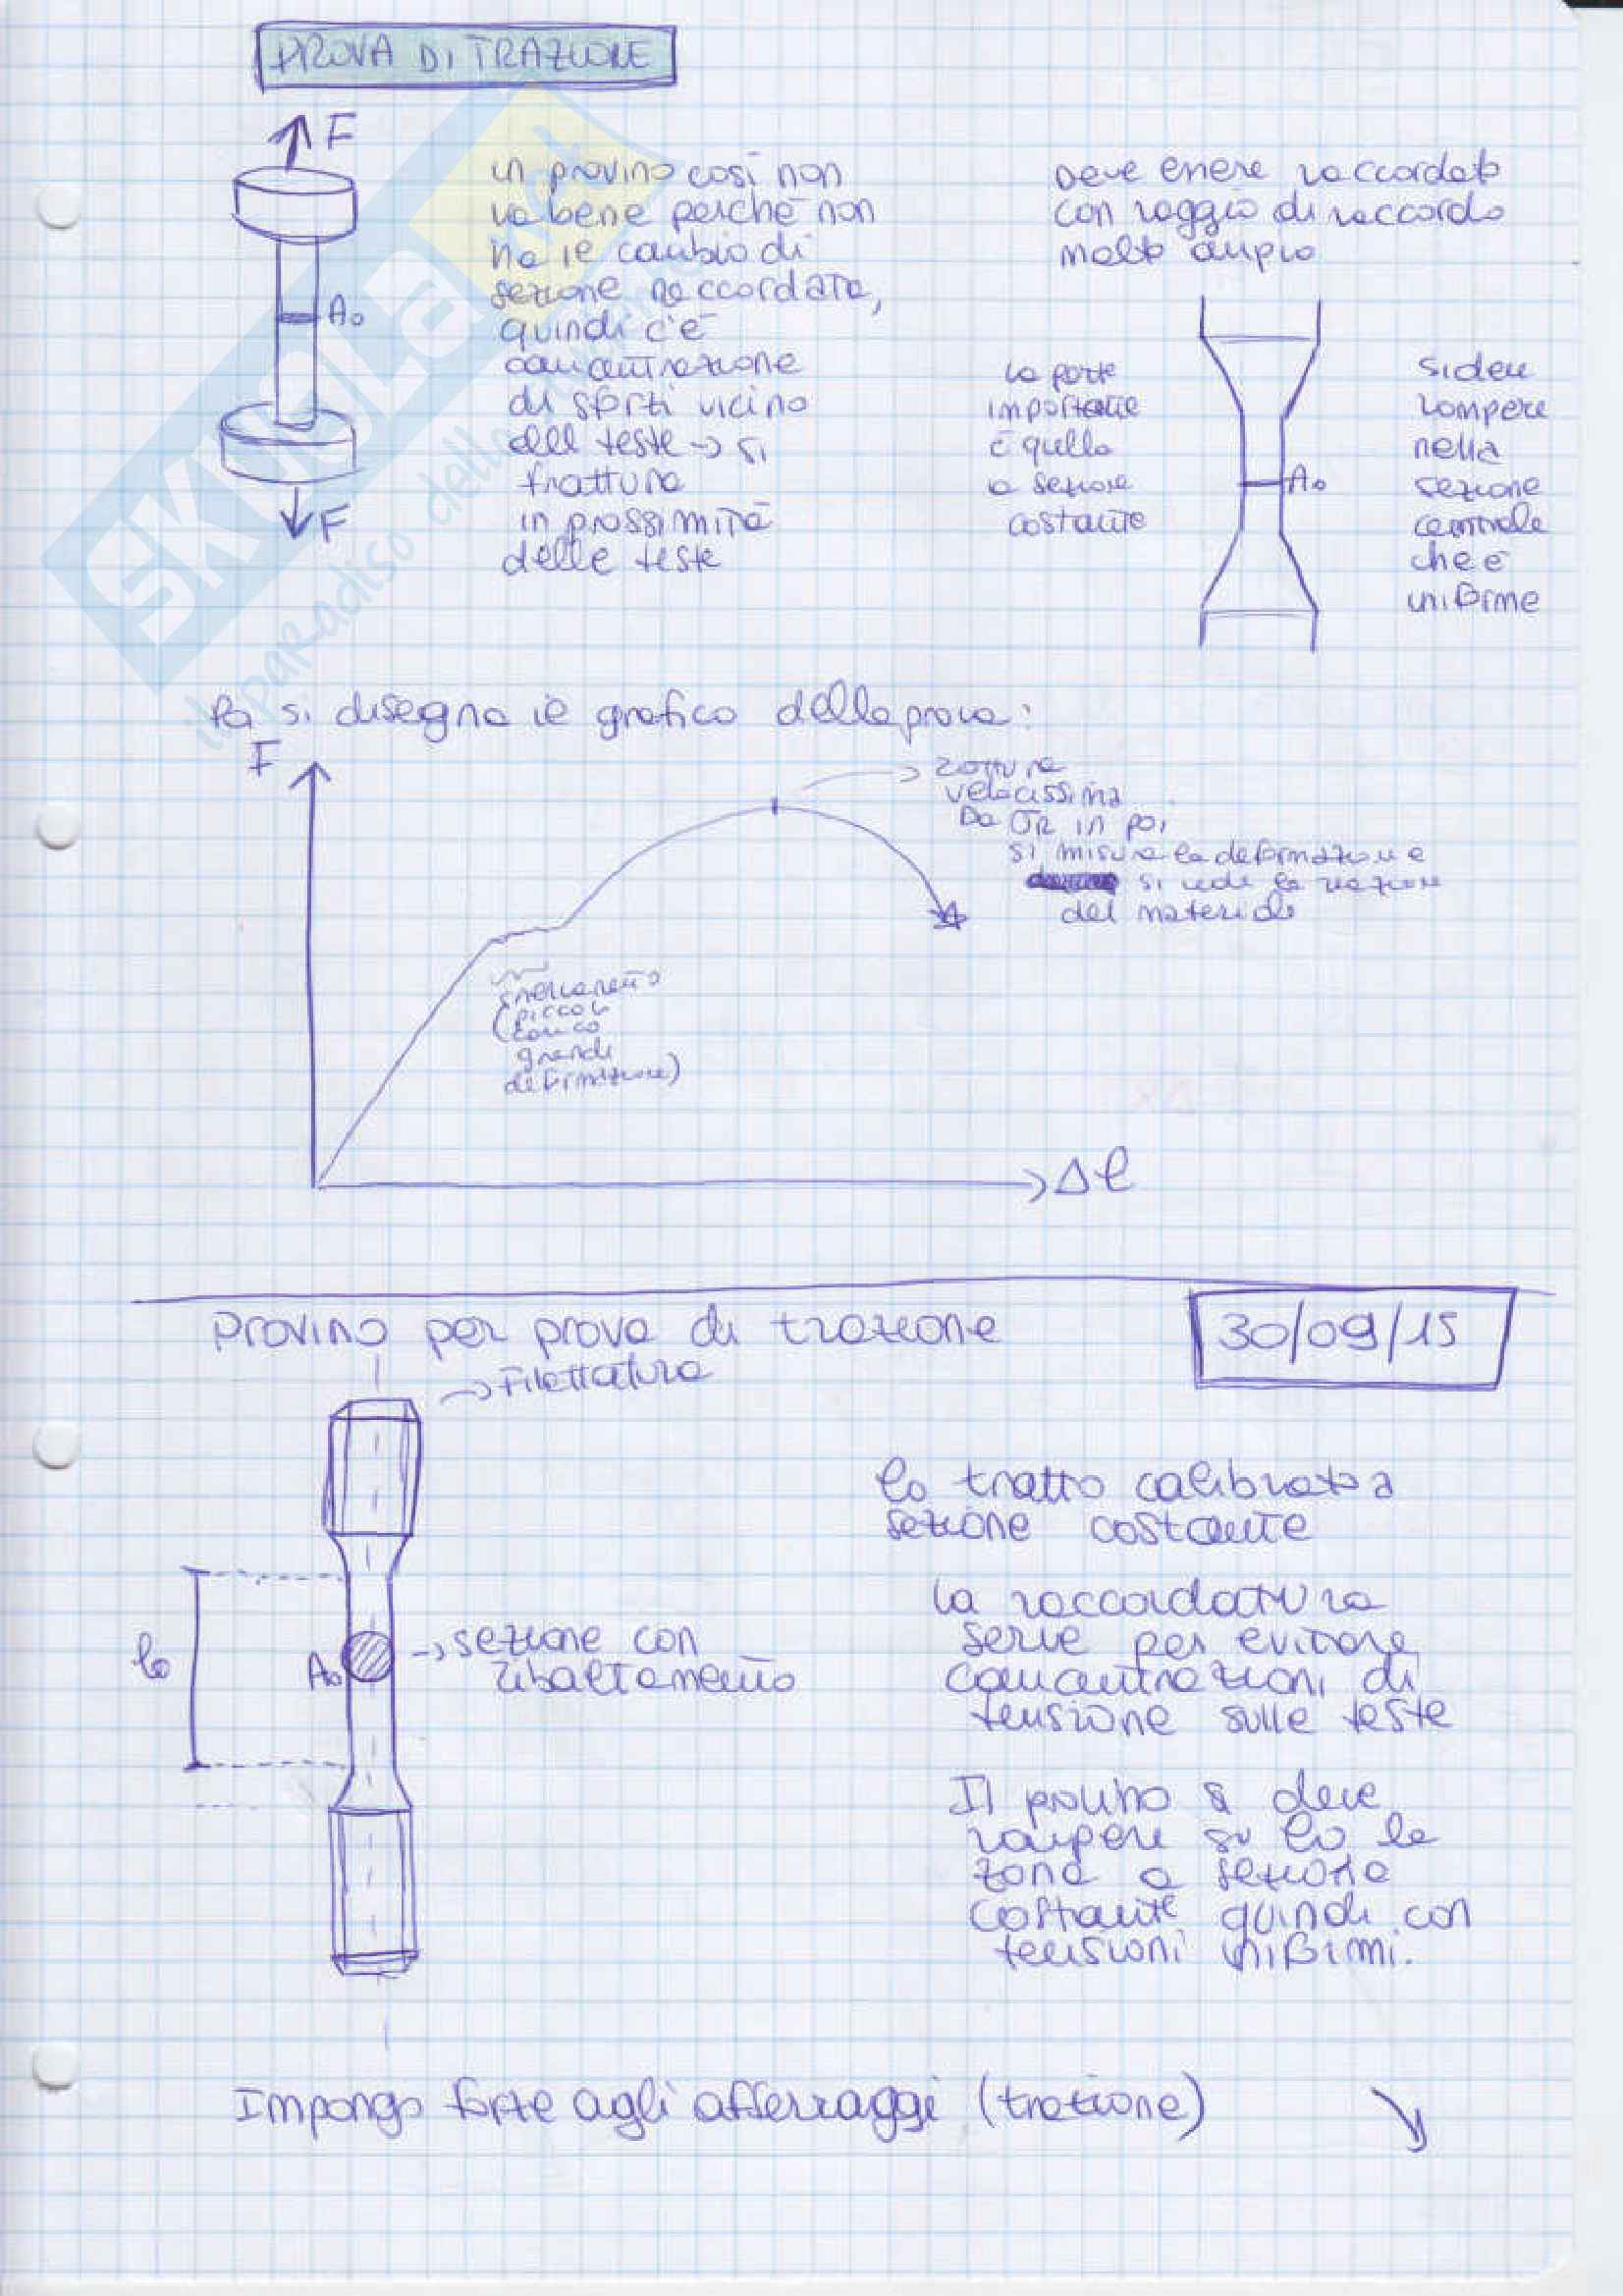 PROVA DI TRAZIONE
F
un provino così non
va bene perché non
ha il cambio di
sezione raccordata,
quindi c'è
concentrazione
di sforzi vicino
alle teste → si
frattura
in prossimità
delle teste
A₀
F
Deve essere raccordato
con raggio di raccordo
molto ampio
la parte
importante
è quella
a sezione
costante
A₀
si deve
rompere
nella
sezione
centrale
che è
uniforme
SKUOLA.net
il paradiso dello
Poi si disegna il grafico della prova:
F
→ rottura
velocissima
Da σR in poi
si misura la deformazione e
si vede la reazione
del materiale
snervamento
(piccolo
carico
grande
deformazione)
Δl
Provino per prova di trazione
30/09/15
→ Filettatura
l₀ tratto calibrato a
sezione costante
l₀
A₀
→ sezione con
ribaltamento
la raccordatura
serve per evitare
concentrazioni di
tensione sulle teste
Il provino si deve
rompere su l₀ la
zona a sezione
costante quindi con
tensioni uniformi.
Impongo forze agli afferraggi (trazione)